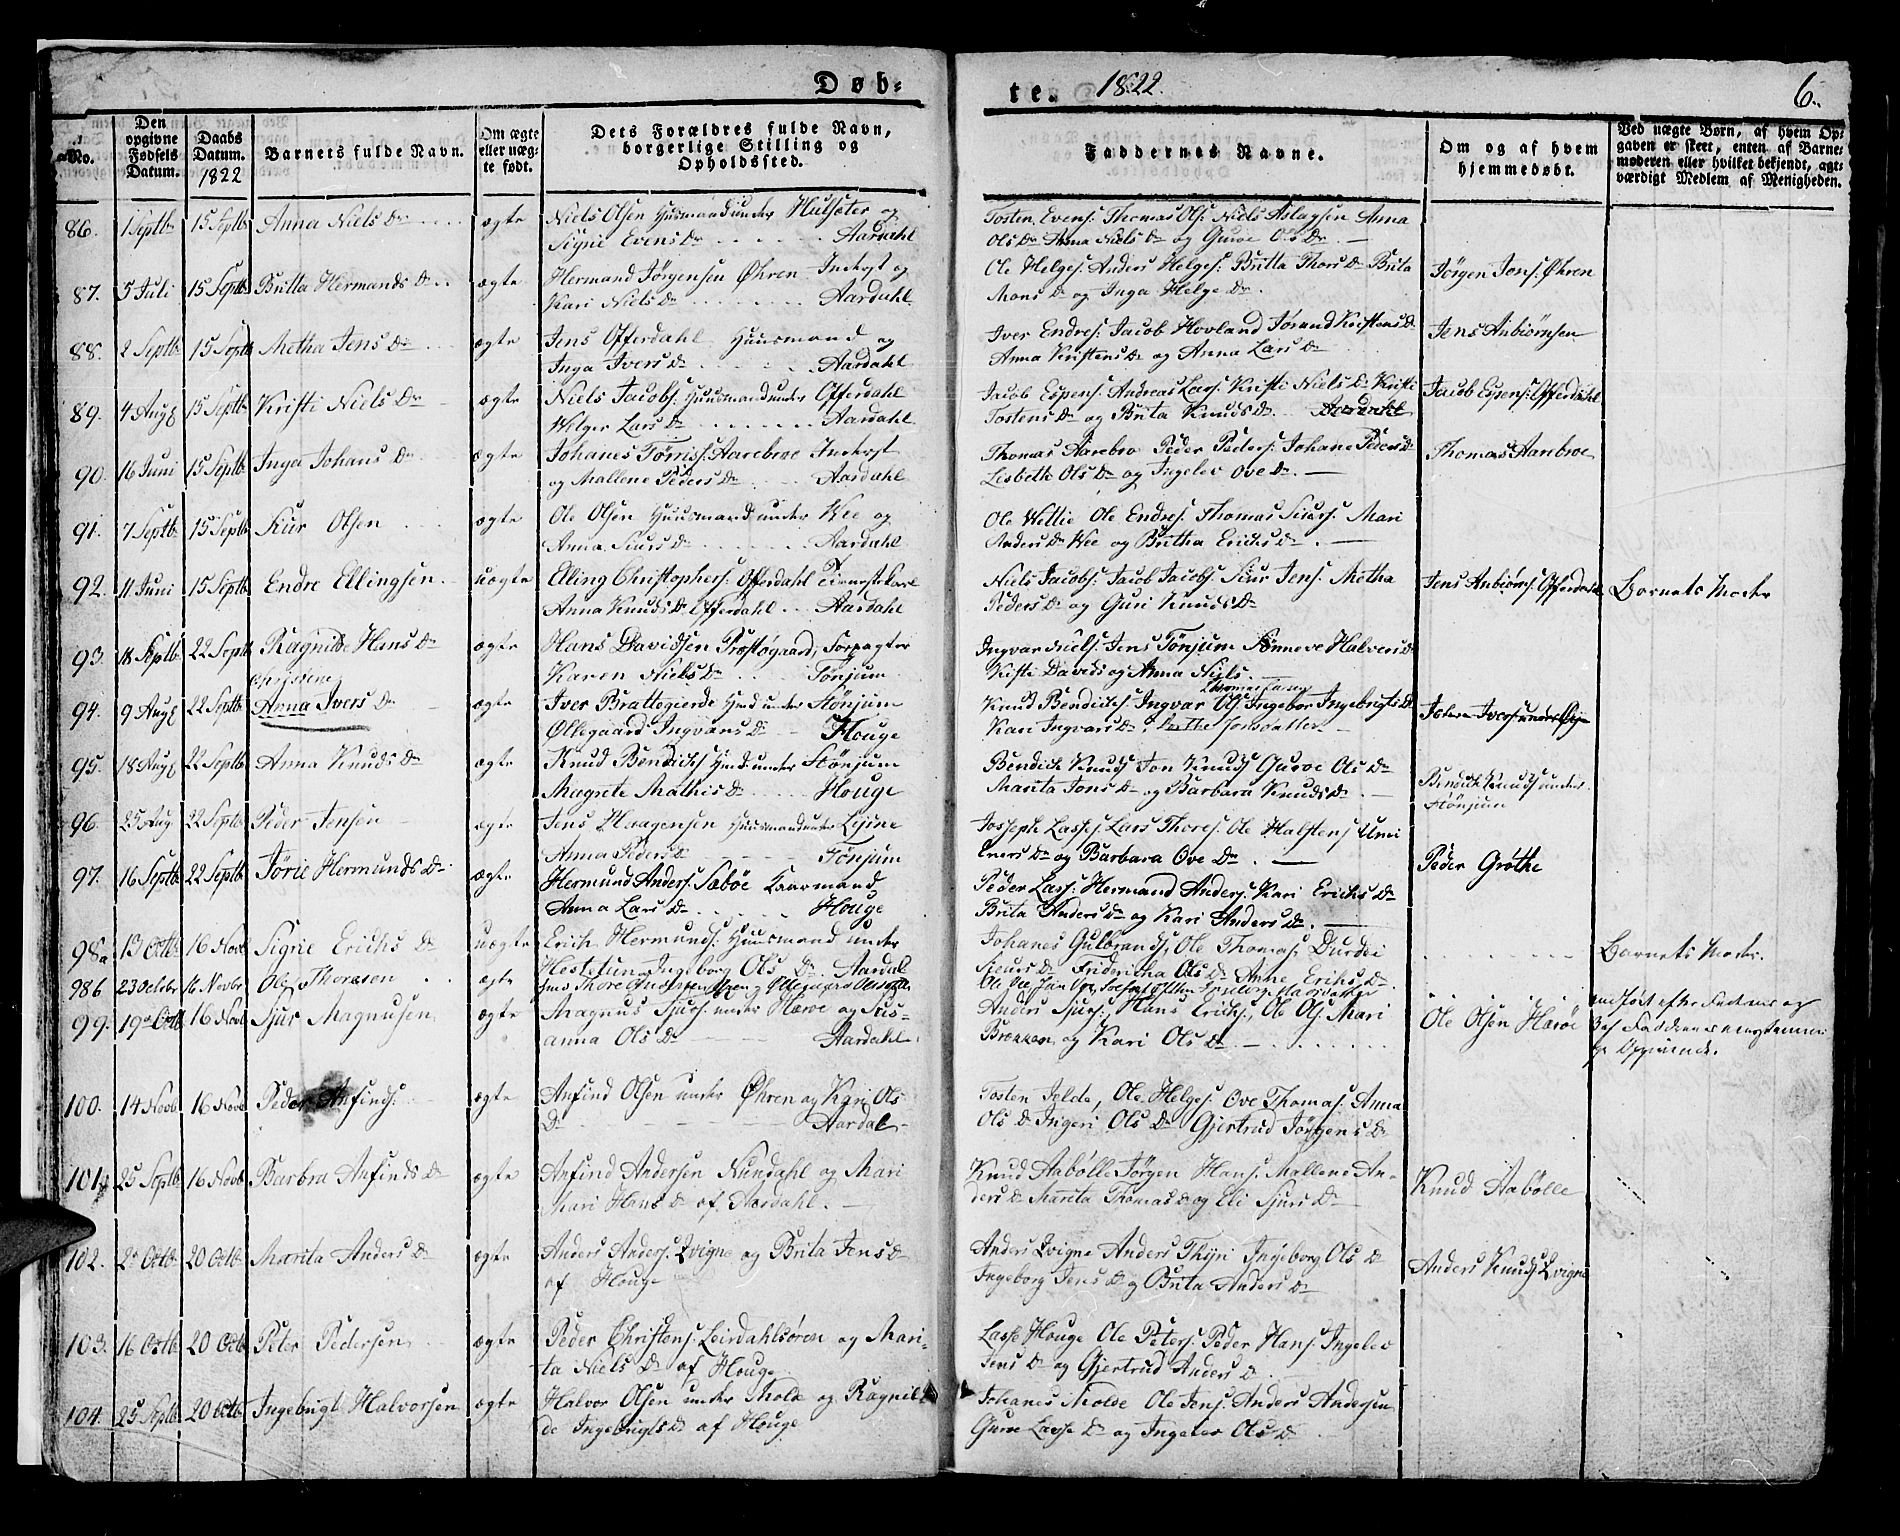 Døb-
te. 1822. 6.
No.
Den opgivne Fødsels Datum.
Daabs Datum. 1822
Barnets fulde Navn.
Om ægte eller uægte født.
Dets Forældres fulde Navn, borgerlige Stilling og Opholdssted.
Faddernes Navne.
Om og af hvem hjemmedøbt.
Ved uægte Børn, af hvem Opgaven er skeet, enten af Barnemoderen eller hvilket bekjendt, agtværdigt Medlem af Menigheden.
86. 1 Septbr 15 Septb Anna Niels Dr ægte Niels Olsen Huusmand under Hulsæter og
Signe Evens Dr Aardahl
Tosten Evens: Thomas Ols: Niels Aslagsen Anna
Ols Dr Anna Niels Dr og Guroe Ols Dr
87. 5 Juli 15 Septb Britta Hermands Dr ægte Hermand Jörgensen Øhren Inderst og
Kari Niels Dr Aardahl
Ole Helges: Anders Helges: Britta Thors Dr Brita
Mons Dr og Inga Helge Dr
Jörgen Jons: Øhren
88. 2 Septb 15 Septb Metha Jens Dr ægte Jens Offerdahl Huusmand og
Inga Ivers Dr Aardahl
Iver Endres: Jacob Hovland Jörand Kristens Dr
Anna Kristens Dr og Anna Lars Dr
Jens Anbiörnsen
89. 4 Aug 15 Septb Kristi Niels Dr ægte Niels Jacobs: Huusmand under Offerdahl
Wilger Lars Dr Aardahl
Jacob Espens: Andreas Lars: Kristi Niels Dr Kristi
Tostens Dr og Brita Knuds Dr Aardahl
Jacob Espens: Offerdahl
90. 16 Juni 15 Septb Inga Johans Dr ægte Johanes Torris: Aarebroe Inderst
og Mallene Peders Dr Aardahl
Thomas Aarebro Peder Peders: Johane Peders Dr
Lisbeth Ols Dr og Ingelev Ove Dr
Thomas Aarebroe
91. 7 Septb 15 Septb Siur Olsen ægte Ole Olsen Huusmand under Wee og
Anna Siurs Dr Aardahl
Ole Wettie Ole Endres: Thomas Siurs: Mari
Anders Dr Wee og Britha Erichs Dr
92. 11 Juni 15 Septb Endre Ellingsen uægte Elling Christophers: Offerdahl Tienestekarl
Anna Knuds Dr Offerdahl Aardahl
Niels Jacobs: Jacob Jacobs: Siur Jens: Metha
Peders Dr og Guri Knuds Dr
Jens Anbiörns: Offerdahl Barnets Moder
93. 18 Septb 22 Septb Ragnilde Hans Dr ægte Hans Davidsen Præstegaard, Forpagter
Karen Niels Dr Tönjum
Ingvar Niels: Jens Tönjum Sönneve Halvers Dr
Kisti Davids og Anna Niels
94. 9 Aug 22 Septb Anna Ivers Dr ægte Iver Brattegierde Hmd under Stönjum
Ollegaard Ingvars Dr Houge
Knud Bendicts: Ingvar Ols: Ingebor Ingebrigts Dr
Kari Ingvars Dr
95. 18 Aug 22 Septb Anna Knuds Dr ægte Knud Bendichs: Hmd: under Stönjum
Magrete Mathis Dr Houge
Bendich Knuds: Jon Knuds: Guroe Ols Dr
Marita Jons Dr og Barbara Knuds Dr
Bendich Knuds: under
Stönjum
96. 25 Aug 22 Septb Peder Jensen ægte Jens Haagensen Huusmand under Ljsne
Anna Peders Dr Tönjum
Josseph Lasses: Lars Thores: Ole Halstens: Umi
Eners Dr og Barbara Ove Dr
97. 16 Septb 22 Septb Jörie Hermunds Dr ægte Hermund Anders: Sæböe Gaarmand
Anna Lars Dr Houge
Peder Lass: Hermand Anders: Kari Erichs Dr
Brita Anders Dr og Kari Anders Dr
Peder Gröthe
98a 13 Octb 16 Novb Signe Erichs Dr uægte Erich Hermunds: Huusmand under
Hestetun Ingeborg Ols Dr Aardal
Johanes Gulbrands: Ole Thomas: Durdei
Sjeurs Dr Fridericha Ols Dr Anne Erichs Dr
Barnets Moder.
98b 23 October 16 Novbr Ole Thoresen ægte
99. 19de Octb 16 Novb Sjur Magnusen ægte Magnus Sjurs: under Hæroe og Sus-
anna Ols Dr Aardahl
Anders Sjurs: Hans Erichs: Ole Ols: Mari
Brekken og Kari Ols Dr
Ole Olsen Hæröe
100. 14 Novb 16 Novb Peder Anfinds: ægte Anfind Olsen under Øhren og Kari Ols
Dr Aardal
Tosten Jelde, Ole Helges: Ove Thomas: Anna
Ols Dr Ingeri Ols Dr Gjertrud Jörgens Dr
101. 25 Septb 16 Novb Barbra Anfinds Dr ægte Anfind Andersen Nundahl og Mari
Mari Hans Dr af Aardahl.
Knud Aabölle Jörgen Hans: Mallene An-
ders Dr Marita Thomas Dr og Eli Sjurs Dr
Knud Aabölle
102. 2 Octb 20 Octb Marita Anders Dr ægte Anders Anders: Qvigne og Brita Jens Dr
af Houge
Anders Qvigne Anders Thyn Ingeborg Ols Dr
Ingeborg Jens Dr og Brita Anders Dr
Anders Knuds: Qvigne
103. 16 Octb 20 Octb Peter Pedersen ægte Peder Christens: Leirdahlsören og Mari-
ta Niels Dr af Houge
Lasse Houge Ole Peters: Peder Hans: Ingelev
Jens Dr og Gjertrud Anders Dr
104. 25 Septb 20 Octb Ingebrigt Halvorsen ægte Halvor Olsen under Molde og Ragnil-
de Ingebrigts Dr af Houge
Johanes Molde Ole Jens: Anders Andersen
Guroe Lasse Dr og Ingelev Ols Dr